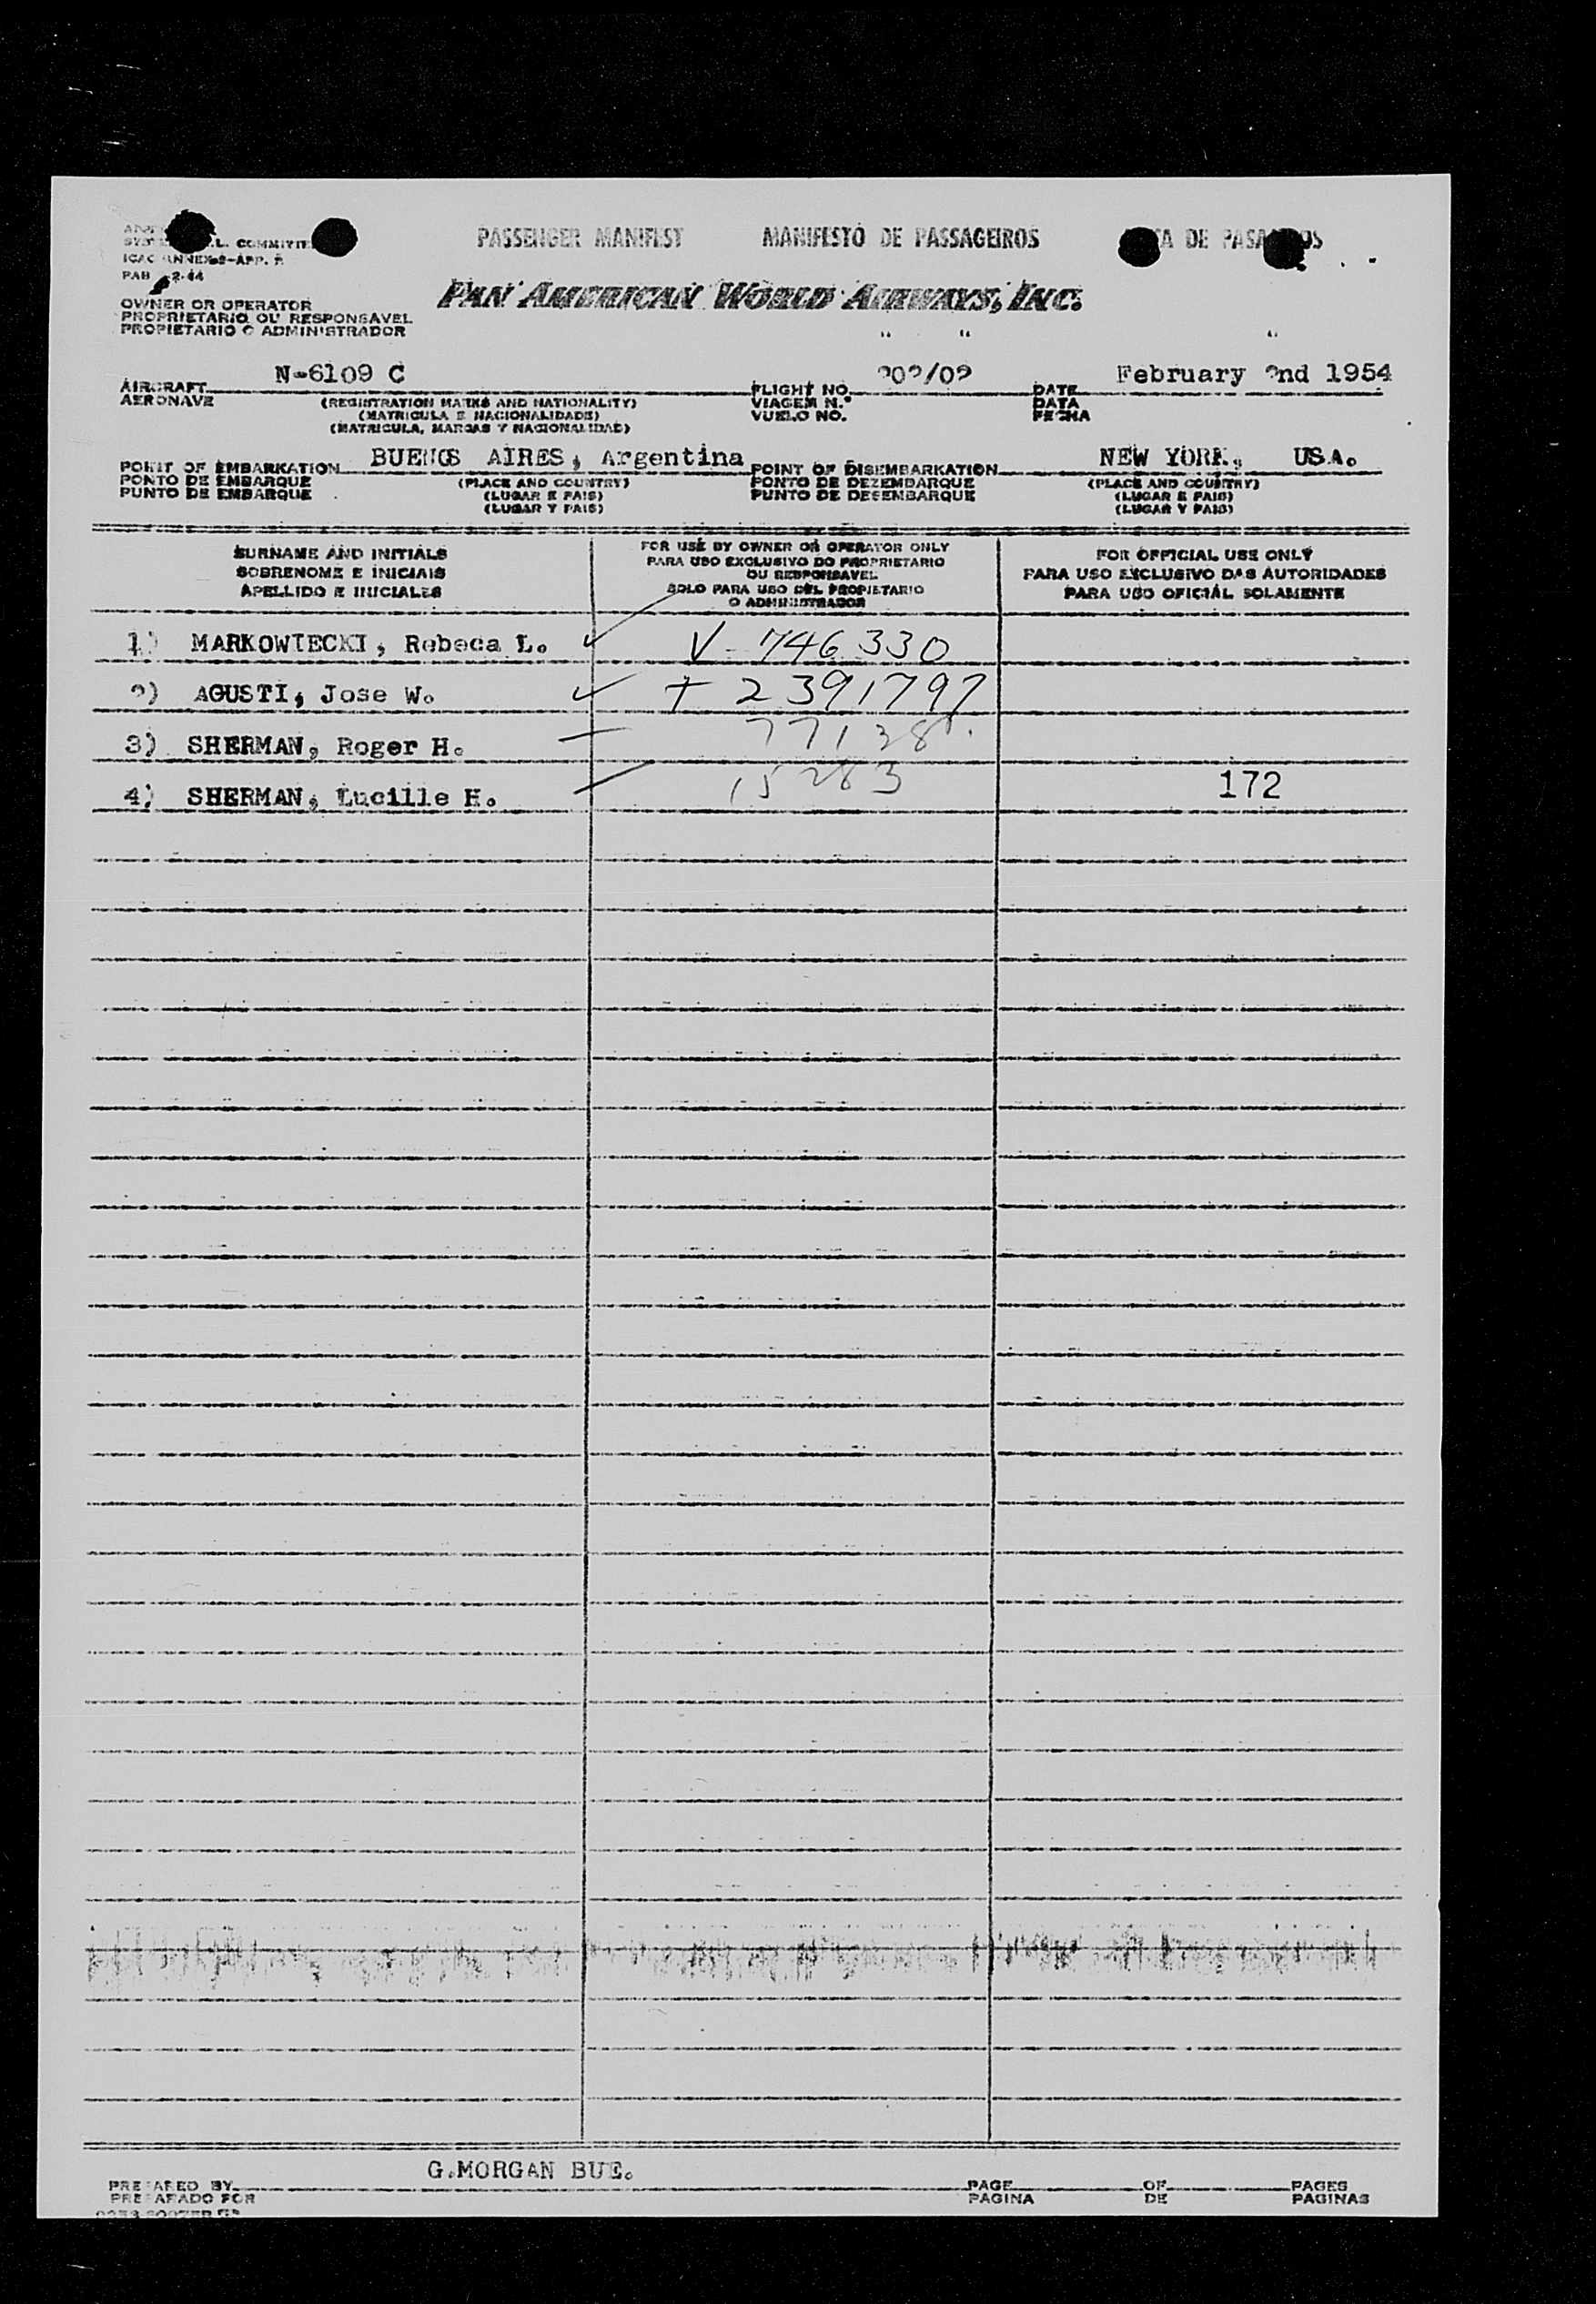 PASSENGER MANIFEST MANIFESTO DE PASSAGEIROS DE
L. COMMITTE
ICAO ANNEX-9-APP.
PAB 2-44
PAN AMERICAN WORLD AIRWAYS, INC.
OWNER OR OPERATOR
PROPRIETARIO OU RESPONSAVEL
PROPIETARIO O ADMINISTRADOR
" " "
AIRCRAFT N-6109 C FLIGHT NO. 202/02 DATE February 2nd 1954
AERONAVE (REGISTRATION MARKS AND NATIONALITY) VIAGEM N.º DATA
(MATRICULA E NACIONALIDADE) VUELO NO. FECHA
(MATRICULA, MARCAS Y NACIONALIDAD)
POINT OF EMBARKATION BUENOS AIRES, Argentina POINT OF DISEMBARKATION NEW YORK, USA.
PONTO DE EMBARQUE (PLACE AND COUNTRY) PONTO DE DEZEMBARQUE (PLACE AND COUNTRY)
PUNTO DE EMBARQUE (LUGAR E PAIS) PUNTO DE DESEMBARQUE (LUGAR E PAIS)
(LUGAR Y PAIS) (LUGAR Y PAIS)
SURNAME AND INITIALS
SOBRENOME E INICIAIS
APELLIDO E INICIALES
FOR USE BY OWNER OR OPERATOR ONLY
PARA USO EXCLUSIVO DO PROPRIETARIO
OU RESPONSAVEL
SOLO PARA USO DEL PROPIETARIO
O ADMINISTRADOR
FOR OFFICIAL USE ONLY
PARA USO EXCLUSIVO DAS AUTORIDADES
PARA USO OFICIAL SOLAMENTE
1) MARKOWIECKI, Rebeca L. ✓ V-746330
2) AGUSTI, Jose W. ✓ + 2391797
3) SHERMAN, Roger H. 77128
4) SHERMAN, Lucille H. 15283 172
G.MORGAN BUE.
PREPARED BY PAGE OF PAGES
PREPARADO POR PAGINA DE PAGINAS